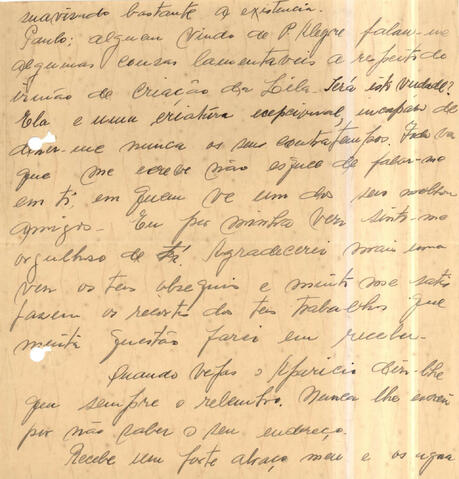 suavisando bastante a existencia.
Paulo: alguem vindo de P. Alegre falou-me
algumas cousas lamentaveis a respeito do
irmão de criação da Lila. Será isto verdade?
Ela é uma criatura excepcional, incapaz de
dizer-me nunca os seus contratempos. Toda vez
que me escreve não esquece de falar-me
em ti, em quem vê um dos seus melhores
amigos. Eu por minha vez sinto-me
orgulhoso de ti. Agradecerei mais uma
vez os teus obsequios e muito me satis
fazem os recortes dos teus trabalhos que
muita questão farei em receber.
Quando vejas o Aparicio diz-lhe
que sempre o relembro. Nunca lhe escrevi
por não saber o seu endereço.
Recebe um forte abraço meu e os